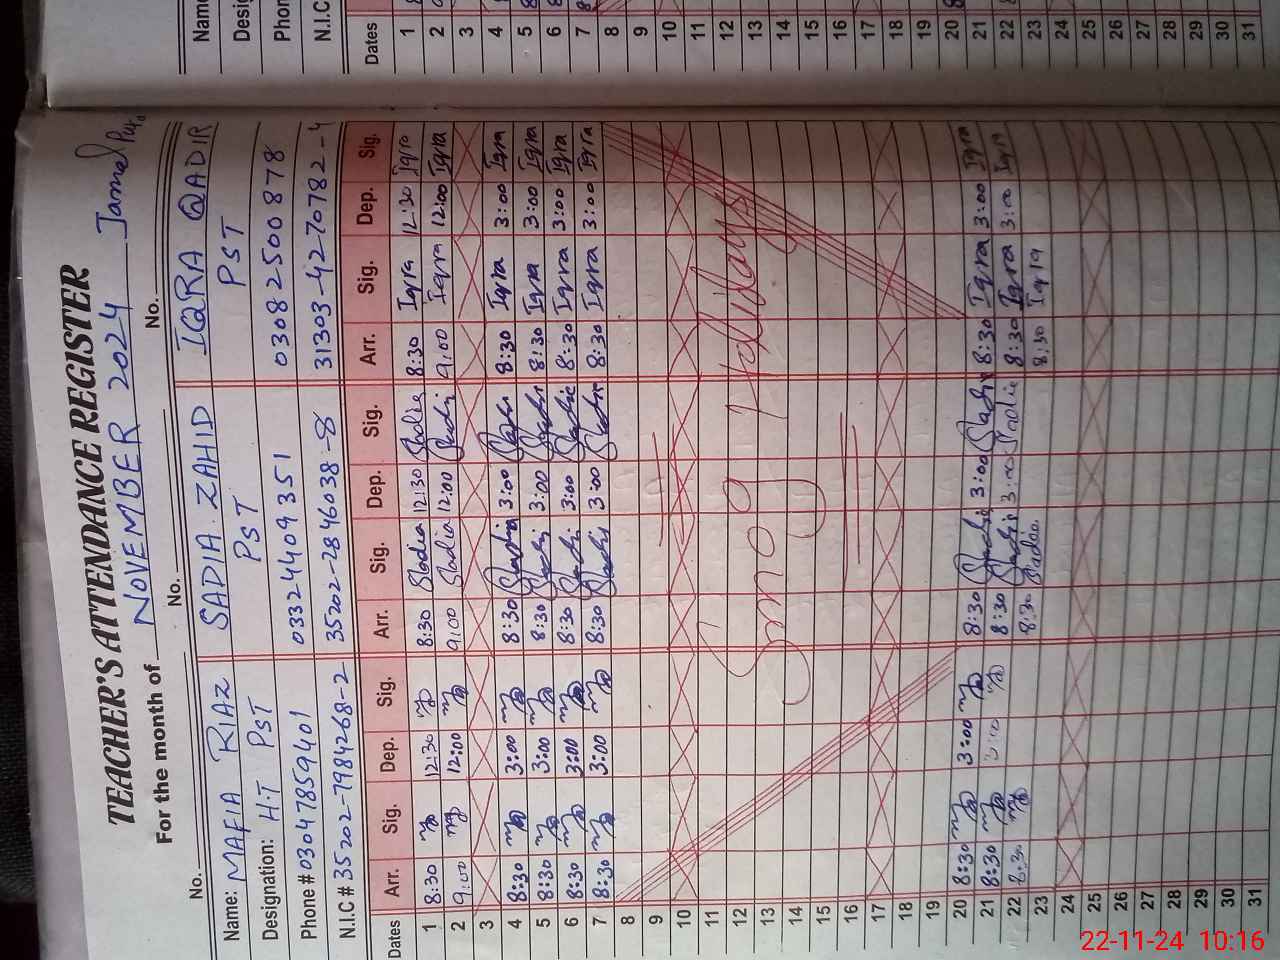 TEACHER'S ATTENDANCE REGISTER
For the month of NOVEMBER 2024
No. No. No.
Name: MAFIA RIAZ SADIA ZAHID IQRA QADIR
Designation: H.T PST PST PST
Phone # 03047859401 03324409351 03082500878
N.I.C # 35202-7984268-2 35202-2846038-8 31303-4270782-4
Dates Arr. Sig. Dep. Sig. Arr. Sig. Dep. Sig. Arr. Sig. Dep. Sig.
1 8:30 12:30 8:30 Sadia 12:30 8:30 Iqra 12:30 Iqra
2 9:00 12:00 9:00 Sadia 12:00 9:00 Iqra 12:00 Iqra
3
4 8:30 3:00 8:30 3:00 8:30 Iqra 3:00 Iqra
5 8:30 3:00 8:30 3:00 8:30 Iqra 3:00 Iqra
6 8:30 3:00 8:30 3:00 8:30 Iqra 3:00 Iqra
7 8:30 3:00 8:30 3:00 8:30 Iqra 3:00 Iqra
8
9
10
11
12
13
14
Smog Holidays
15
16
17
18
19
20 8:30 3:00 8:30 3:00 8:30 Iqra 3:00 Iqra
21 8:30 3:00 8:30 3:00 8:30 Iqra 3:00 Iqra
22 8:30 8:30 Sadia 8:30 Iqra
23
24
25
26
27
28
29
30
31
Name
Desig
Phon
N.I.C
Dates
1
2
3
4
5
6
7
8
9
10
11
12
13
14
15
16
17
18
19
20
21
22
23
24
25
26
27
28
29
30
31
22-11-24 10:16